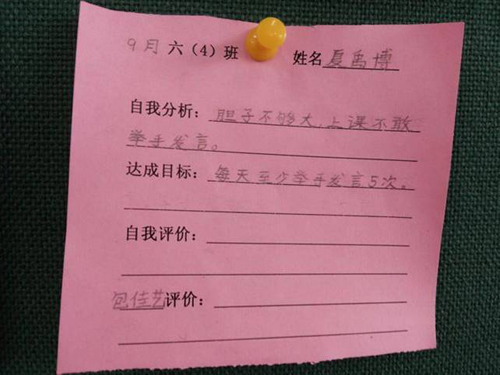 9月 六（4）班 姓名 夏禹博
自我分析：胆子不够大，上课不敢
举手发言。
达成目标：每天至少举手发言5次。
自我评价：
包佳艺评价：